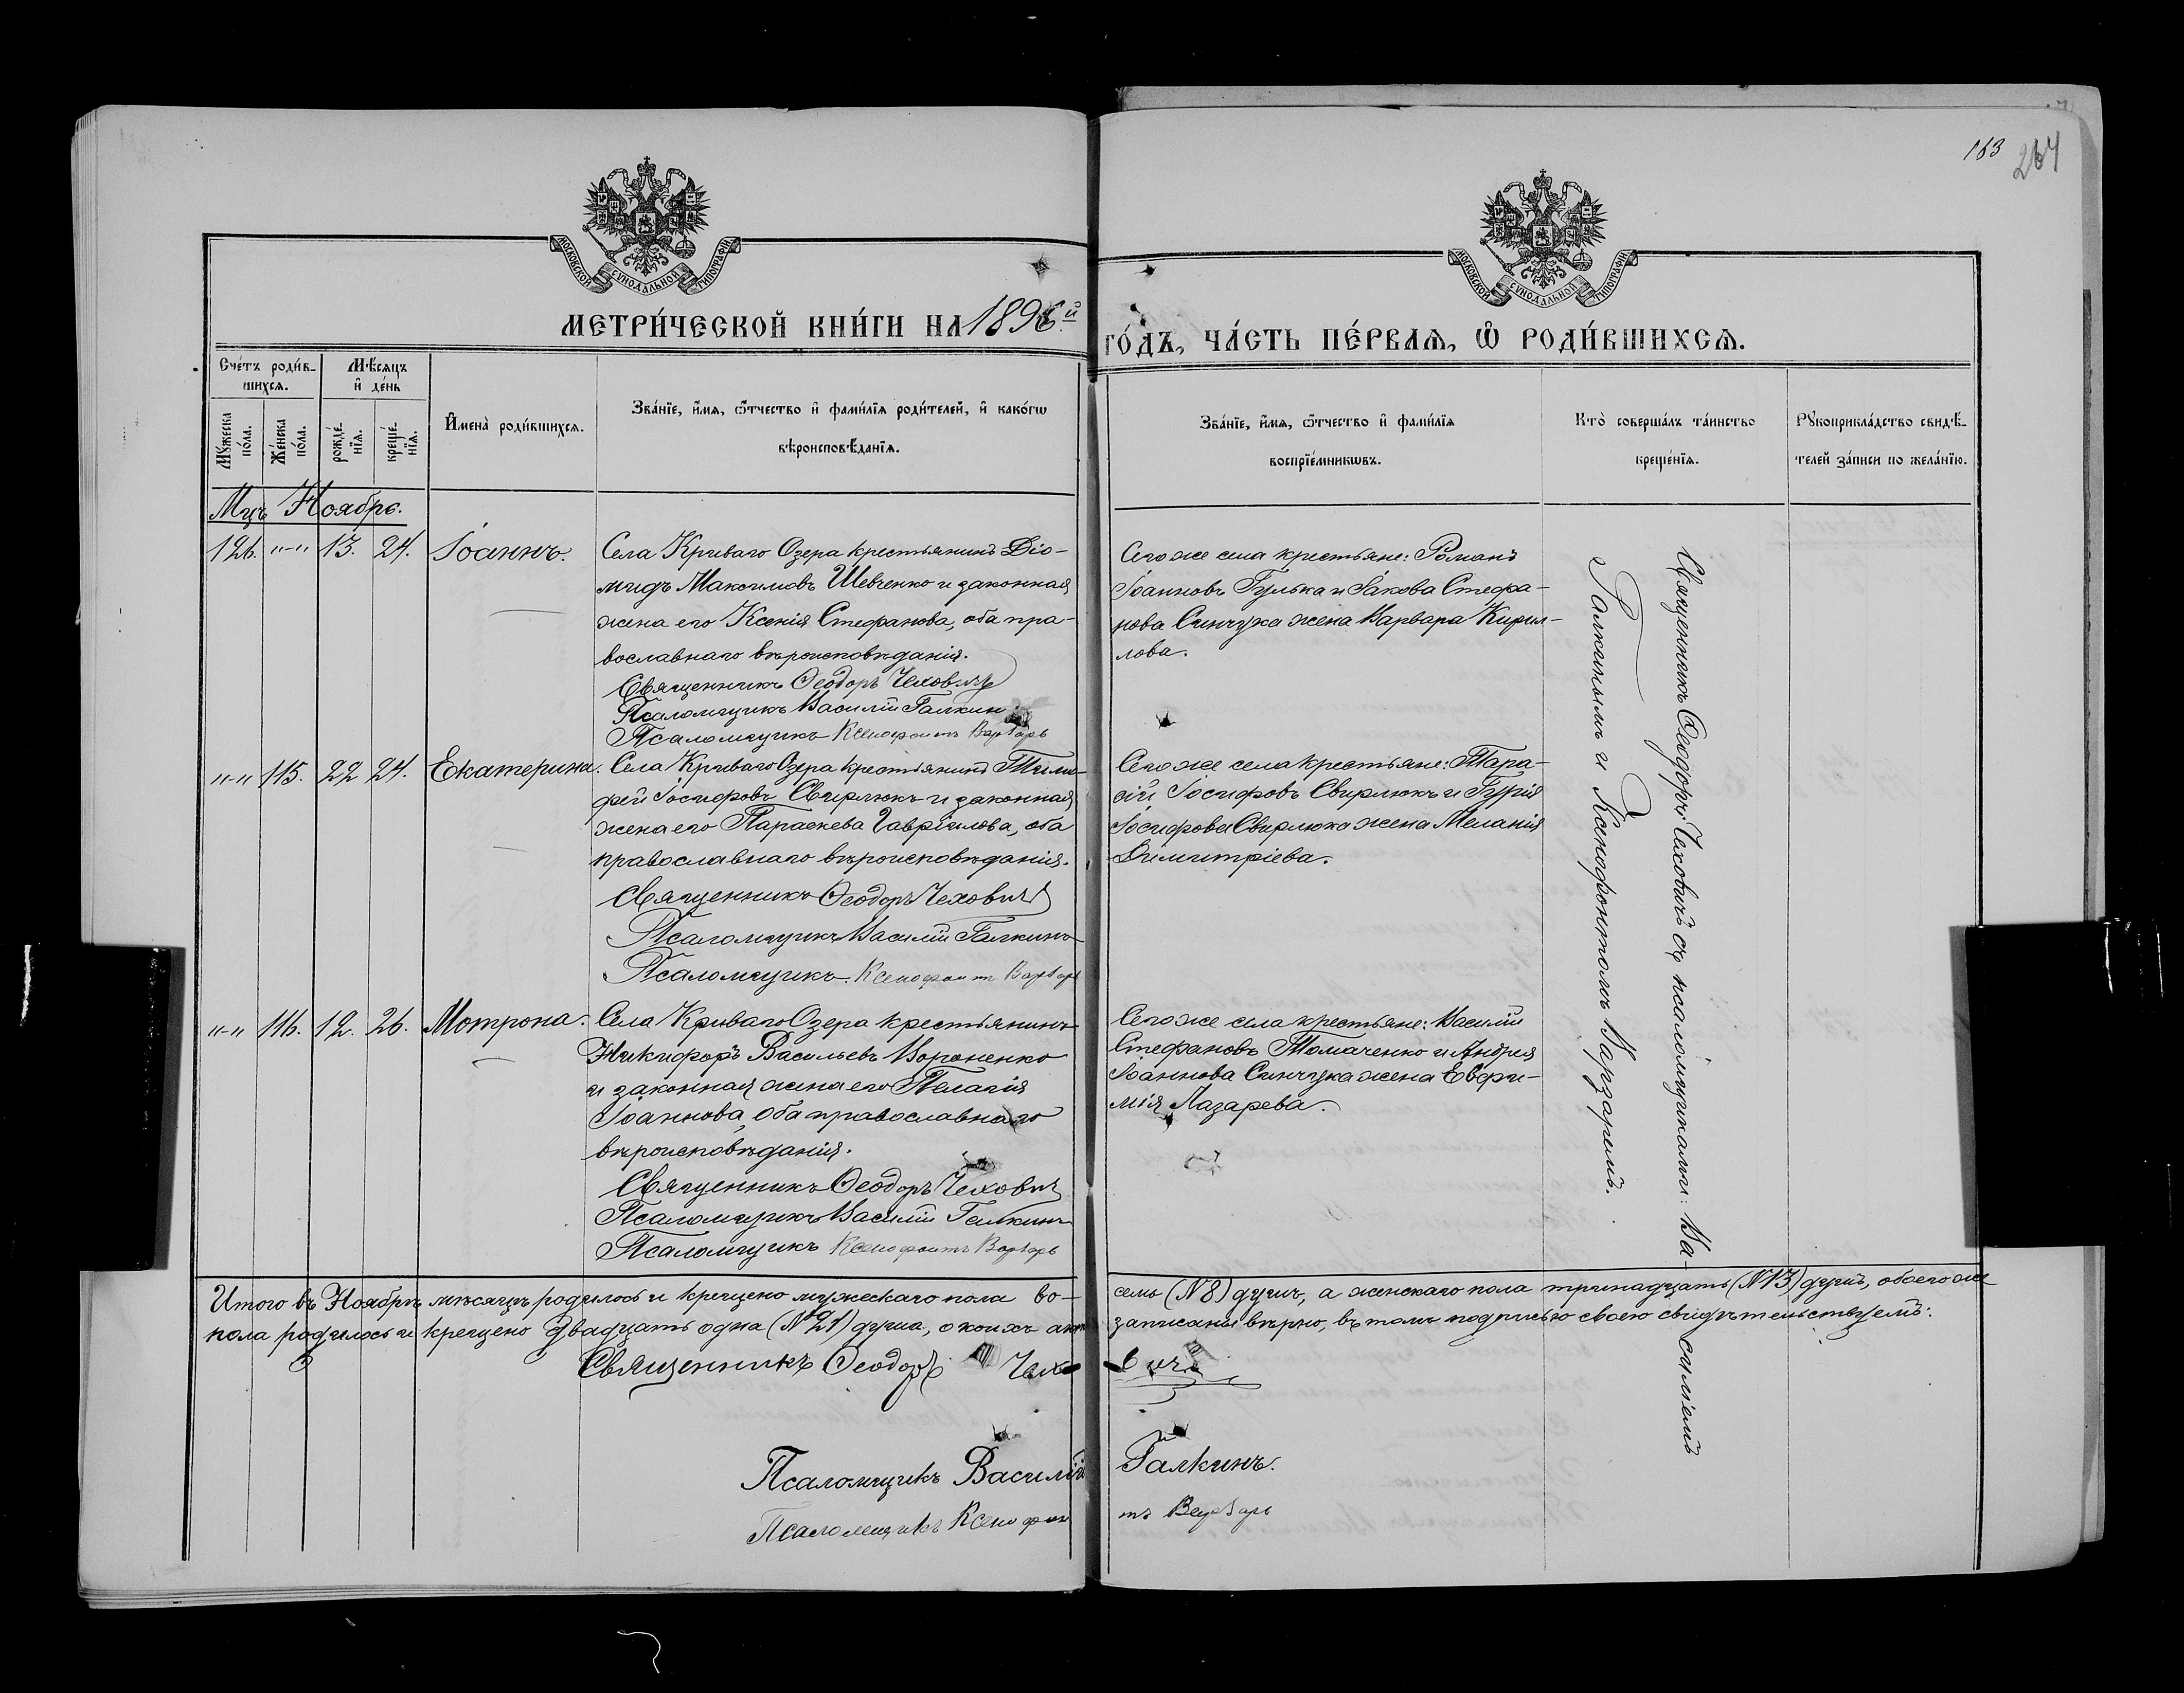 163 264
МОСКОВСКОЙ СѴНОДАЛЬНОЙ ТИПОГРАФІИ
МОСКОВСКОЙ СѴНОДАЛЬНОЙ ТИПОГРАФІИ
МЕТРИ́ЧЕСКОЙ КНИ́ГИ НА 1896й ГО́ДЪ, ЧА́СТЬ ПЕ́РВАѦ, Ѡ҆ РОДИ́ВШИХСѦ.
Сче́тъ роди́в-
шихсѧ.
Мѣ́сѧцъ
и҆ де́нь
Мꙋ́жеска
по́ла.
Же́нска
по́ла.
рожде́-
нїѧ.
креще́-
нїѧ.
И҆мена̀ роди́вшихсѧ.
Зва́нїе, и҆́мѧ, ѻ҆́тчество и҆ фами́лїѧ роди́телей, и҆ како́гѡ
вѣроисповѣ́данїѧ.
Зва́нїе, и҆́мѧ, ѻ҆́тчество и҆ фами́лїѧ
воспрїе́мникѡвъ.
Кто̀ соверша́лъ та́инство
креще́нїѧ.
Рꙋкоприкла́дство свидѣ́-
телей за́писи по жела́нїю.
Мцъ Ноябрь.
126. "-" 13. 24. Іоаннъ.
Села Криваго Озера крестьянинъ Діо-
мидъ Максимовъ Шевченко и законная
жена его Ксенія Стефанова, оба пра-
вославнаго вѣроисповѣданія.
Священникъ Ѳеодоръ Чеховичъ
Псаломщикъ Василій Галкин
Псаломщикъ Ксенофонтъ Варзарь
Сего же села крестьяне: Романъ
Іоанновъ Гулька и Іакова Стефа-
нова Синчука жена Варвара Кирил-
лова.
"-" 115. 22 24. Екатерина.
Села Криваго Озера крестьянинъ Тимо-
фей Іосифовъ Свирлюкъ и законная
жена его Параскева Гавріилова, оба
православнаго вѣроисповѣданія.
Священникъ Ѳеодоръ Чеховичъ
Псаломщикъ Василій Галкинъ
Псаломщикъ Ксенофонт Варзарь
Сего же села крестьяне: Тара-
сій Іосифовъ Свирлюкъ и Гурія
Іосифова Свирлюка жена Меланія
Димитріева.
"-" 116. 12. 26. Мотрона.
Села Криваго Озера крестьянинъ
Никифоръ Васильевъ Вороненко
и законная жена его Пелагія
Іоаннова, оба православнаго
вѣроисповѣданія.
Священникъ Ѳеодоръ Чехович
Псаломщикъ Василій Галкинъ
Псаломщикъ Ксенофонтъ Варзарь
Сего же села крестьяне: Василій
Стефановъ Томаченко и Андрея
Іоаннова Синчука жена Евфи-
мія Лазарева.
Священникъ Ѳеодоръ Чеховичъ съ псаломщиками: Ва-
силіемъ
Галкинымъ и Ксенофонтомъ Варзаремъ.
Итого въ Ноябрѣ мѣсяцѣ родилось и крещено мужескаго пола во-
семь (№8) душъ, а женскаго пола тринадцать (№13) душъ, обоего же
пола родилось и крещено двадцать одна (№21) душа, о коихъ акты
записаны вѣрно, въ томъ подписью своею свидѣтельствуемъ:
Священникъ Ѳеодоръ Чеховичъ
Псаломщикъ Василій Галкинъ.
Псаломщикъ Ксенофонтъ Варзарь